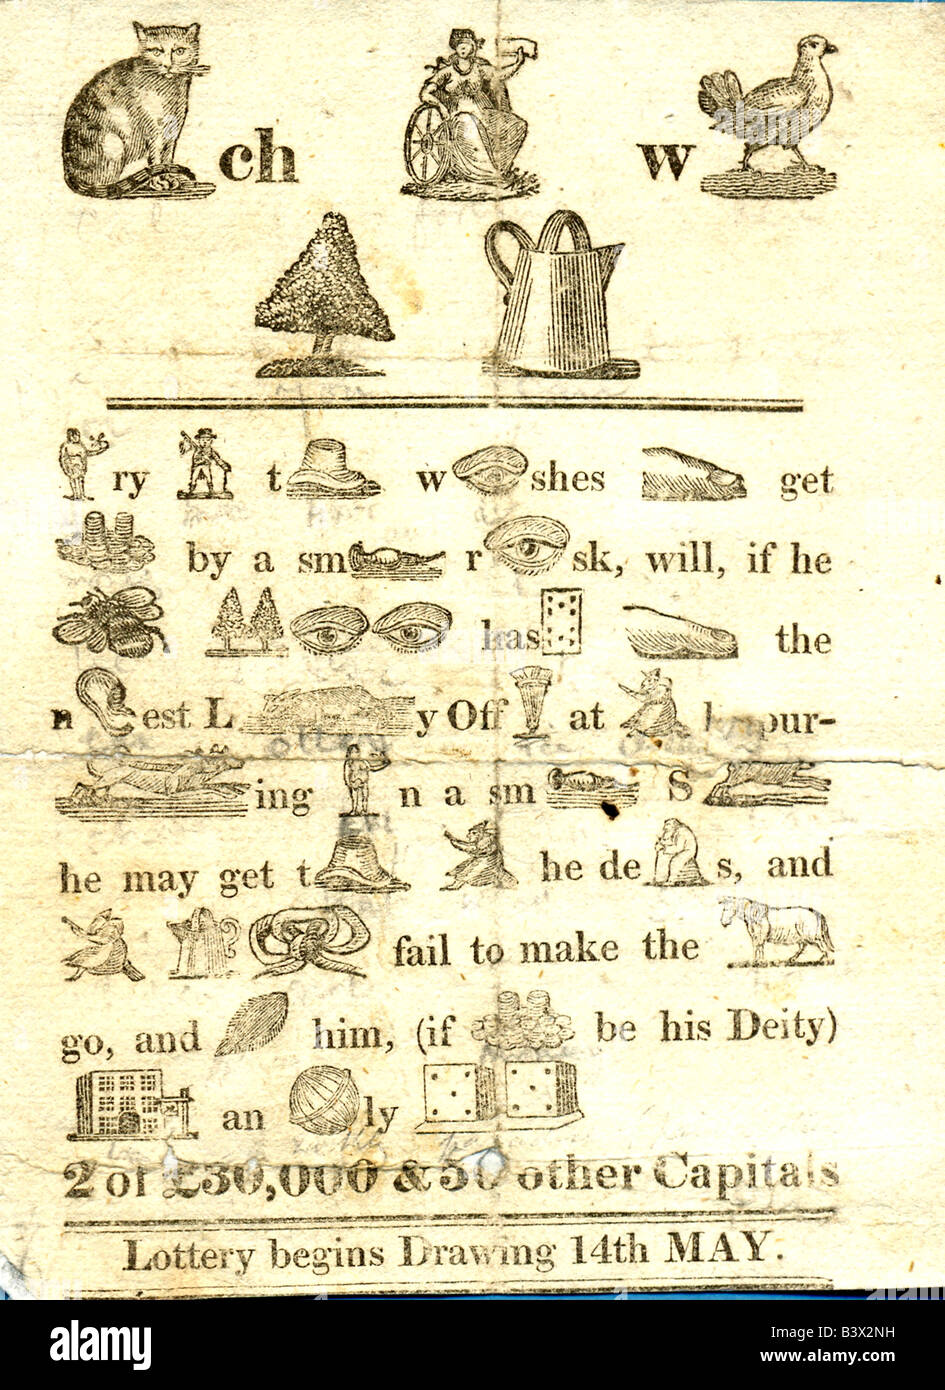 ch w
ry t w shes get
by a sm r sk, will, if he
has the
n est L y Off at pur-
ing n a sm S
he may get t he de s, and
fail to make the
go, and him, (if be his Deity)
an ly
2 of £30,000 & 50 other Capitals
Lottery begins Drawing 14th MAY.
alamy
Image ID: B3X2NH
www.alamy.com